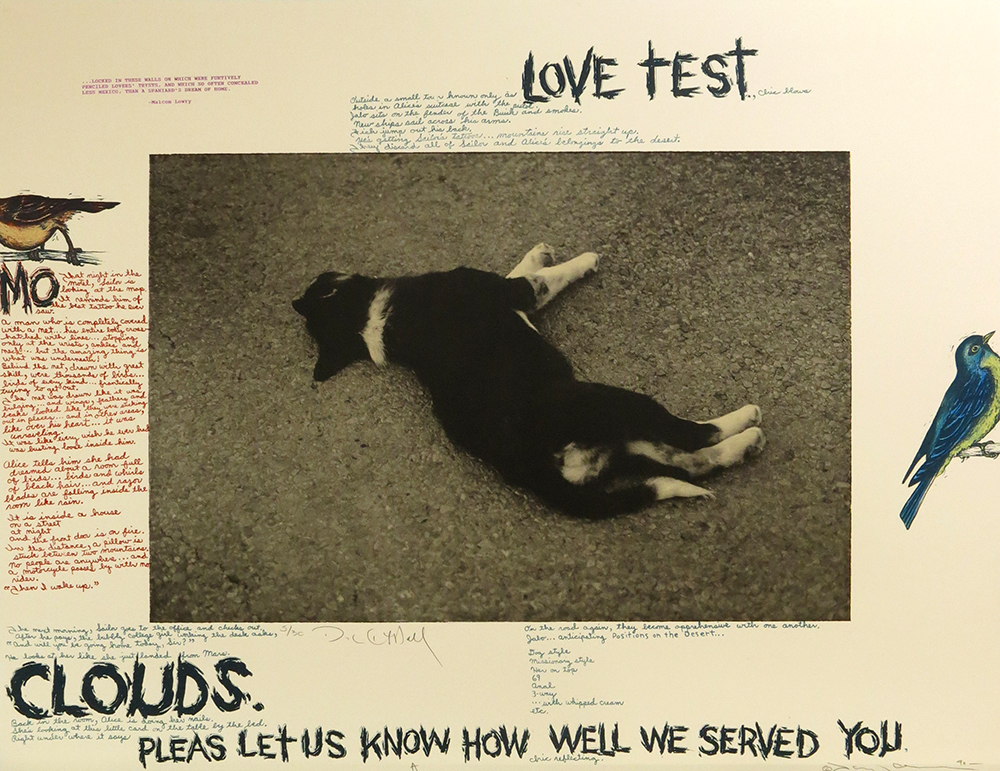 LOVE TEST
...LOCKED IN THESE WALLS ON WHICH WERE FURTIVELY
PENCILED LOVERS' TRYSTS, AND WHICH SO OFTEN CONCEALED
LESS MEXICO, THAN A SPANIARD'S DREAM OF HOME.
-Malcom Lowry
Outside a small known only as
., Chic blows
holes in Alice's suitcase with the pistol.
Jabo sits on the fender of the Buick and smokes.
New ships sail across his arms.
Fish jump out his back.
He's getting Sailor's tattoos... mountains rise straight up.
They discard all of Sailor and Alice's belongings to the desert.
MO
That night in the
motel, Sailor is
looking at the map.
It reminds him of
the best tattoo he ever
saw.
A man who is completely covered
with a net... his entire body cross-
hatched with lines... stopping
only at the wrists, ankles and
neck... but the amazing thing is
what was underneath!
Behind the net, drawn with great
skill, were thousands of birds...
birds of every kind... frantically
trying to get out.
The net was drawn like it was
bulging... and wings, feathers and
beaks looked like they were sticking
out in places... and in other areas,
like over his heart... it was
unraveling.
It was like every wish he ever had
was busting loose inside him.
Alice tells him she had
dreamed about a room full
of birds... birds and whirls
of black hair... and razor
blades are falling inside the
room like rain.
It is inside a house
on a street
at night
and the front door is on fire.
In the distance, a pillow is
stuck between two mountains.
No people are anywhere... and
a motorcycle passes by with no
rider.
"Then I woke up."
The next morning, Sailor goes to the office and checks out.
After he pays, the bubbly college girl working the desk asks,
"And will you be going home today, Sir?"
He looks at her like she just landed from Mars.
5/30
CLOUDS.
Back in the room, Alice is doing her nails.
She's looking at this little card on the table by the bed.
Right under where it says
PLEAS LET US KNOW HOW WELL WE SERVED YOU.
Chic reflecting.
On the road again, they become apprehensive with one another.
Jabo... anticipating Positions on the Desert...
Dog style
Missionary style
Her on top
69
Anal
3-way
...with whipped cream
etc.